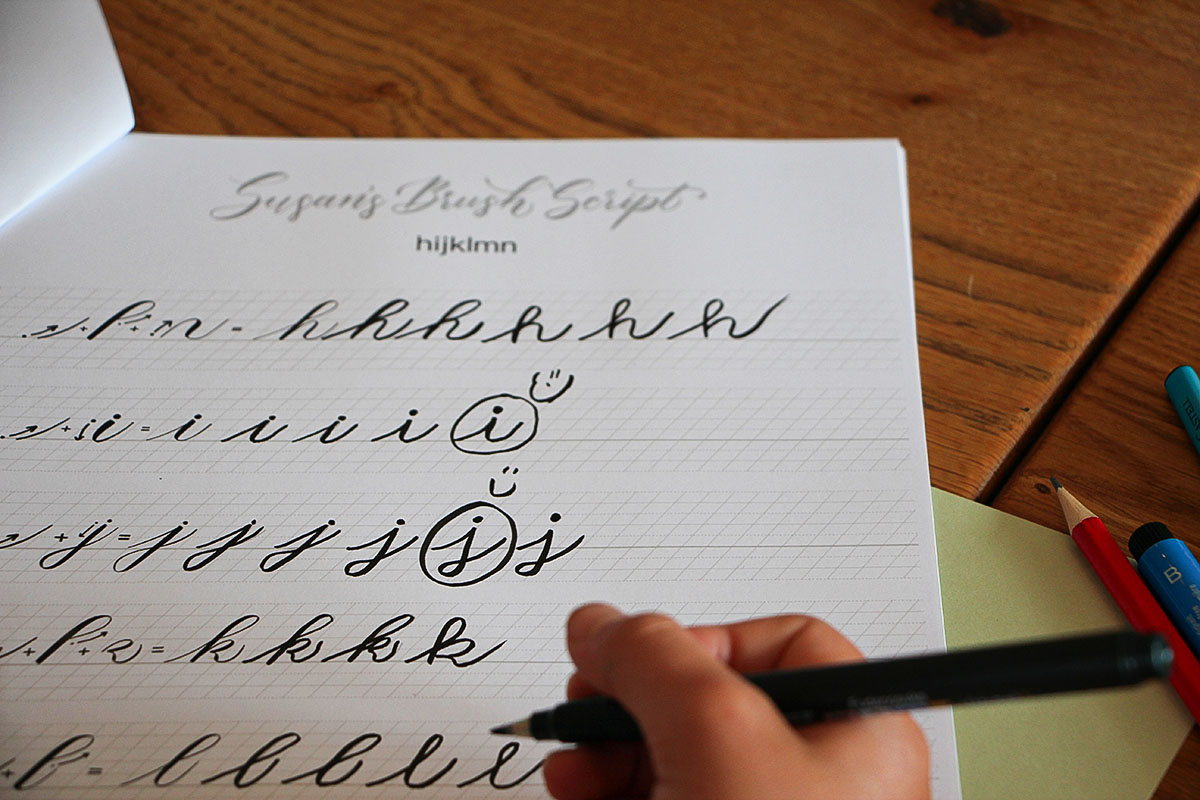 Susan's Brush Script
hijklmn
= h h h h h h
+ i = i i i i i
+ j = j j j j j j
= k k k k
= l l l l l
B